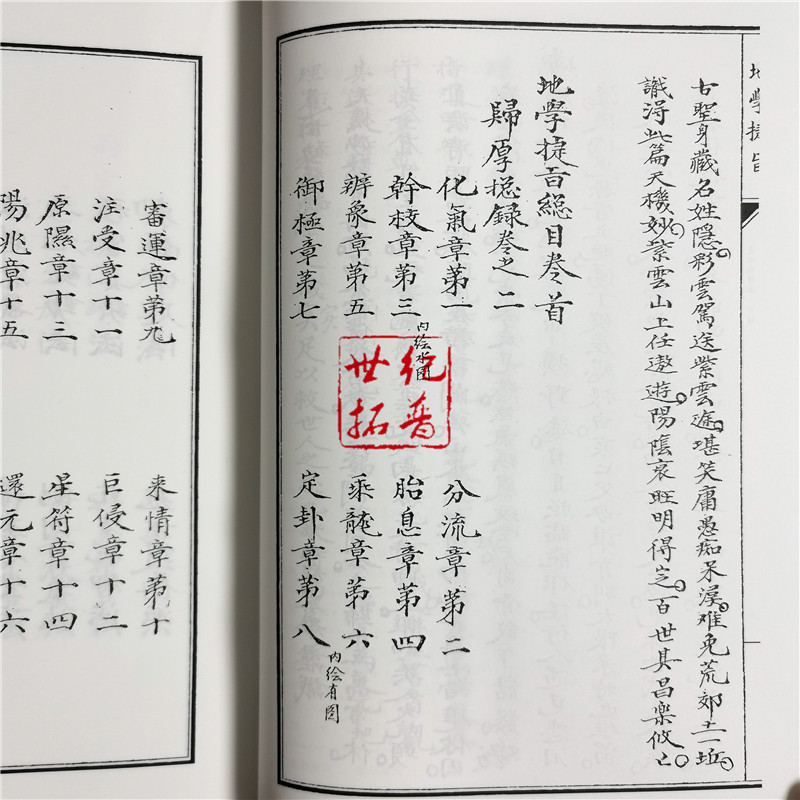 地學捷旨
古聖身藏名姓隱。彩雲駕送紫雲迯。堪笑庸愚痴呆漠。难免荒郊土一坵。
識得此篇天機妙。紫雲山上任遨遊。陽陰衰旺明得定。百世其昌樂攸〻。
地學捷旨總目卷首
歸厚總録卷之二
化氣章第一
分流章第二
幹枝章第三 内绘水图
胎息章第四
辨象章第五
乘龍章第六
御極章第七
定卦章第八 内绘有图
世纪拓普
審運章第九
來情章第十
注受章十一
巨侵章十二
原隰章十三
星符章十四
陽兆章十五
還元章十六